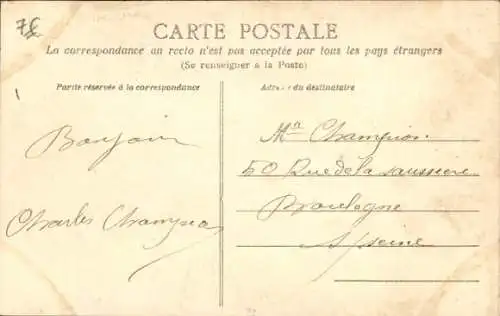 78
CARTE POSTALE
La correspondance au recto n'est pas acceptée par tous les pays étrangers
(Se renseigner à la Poste)
Partie réservée à la correspondance
Adresse du destinataire
Bonjour
Charles Champion
Champion
50 Rue de la saussière
Boulogne
s/seine